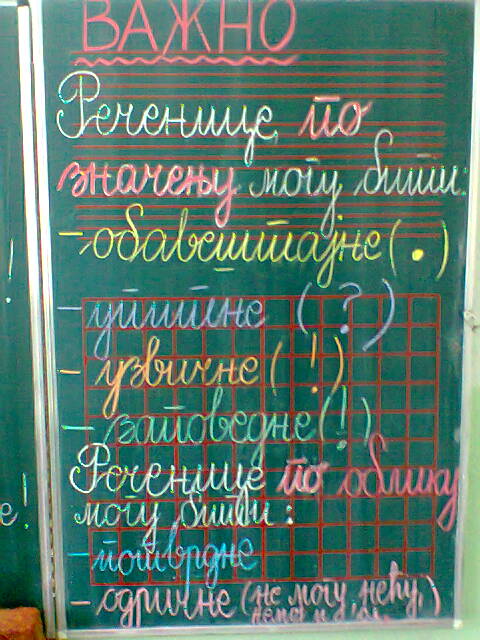 ВАЖНО
Реченице по
значењу могу бити:
- обавештајне (.)
- упитне (?)
- узвичне (!)
- заповедне (!)
Реченице по облику
могу бити:
- потврдне
- одричне (не могу, нећу,
е!